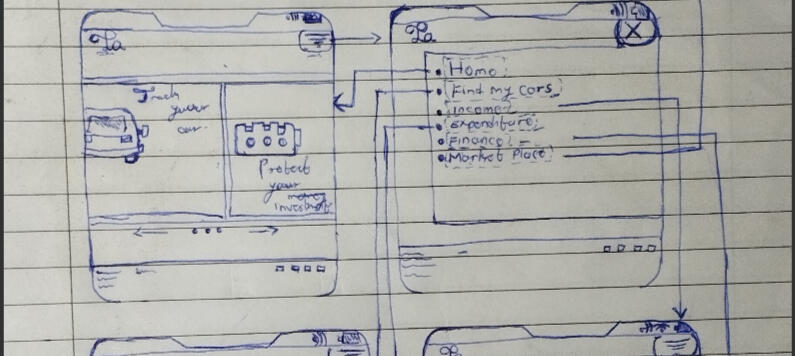 La
Track
your
car
Protect
your
money
investment
La
Home
Find my cars
Income
Expenditure
Finance
Market Place